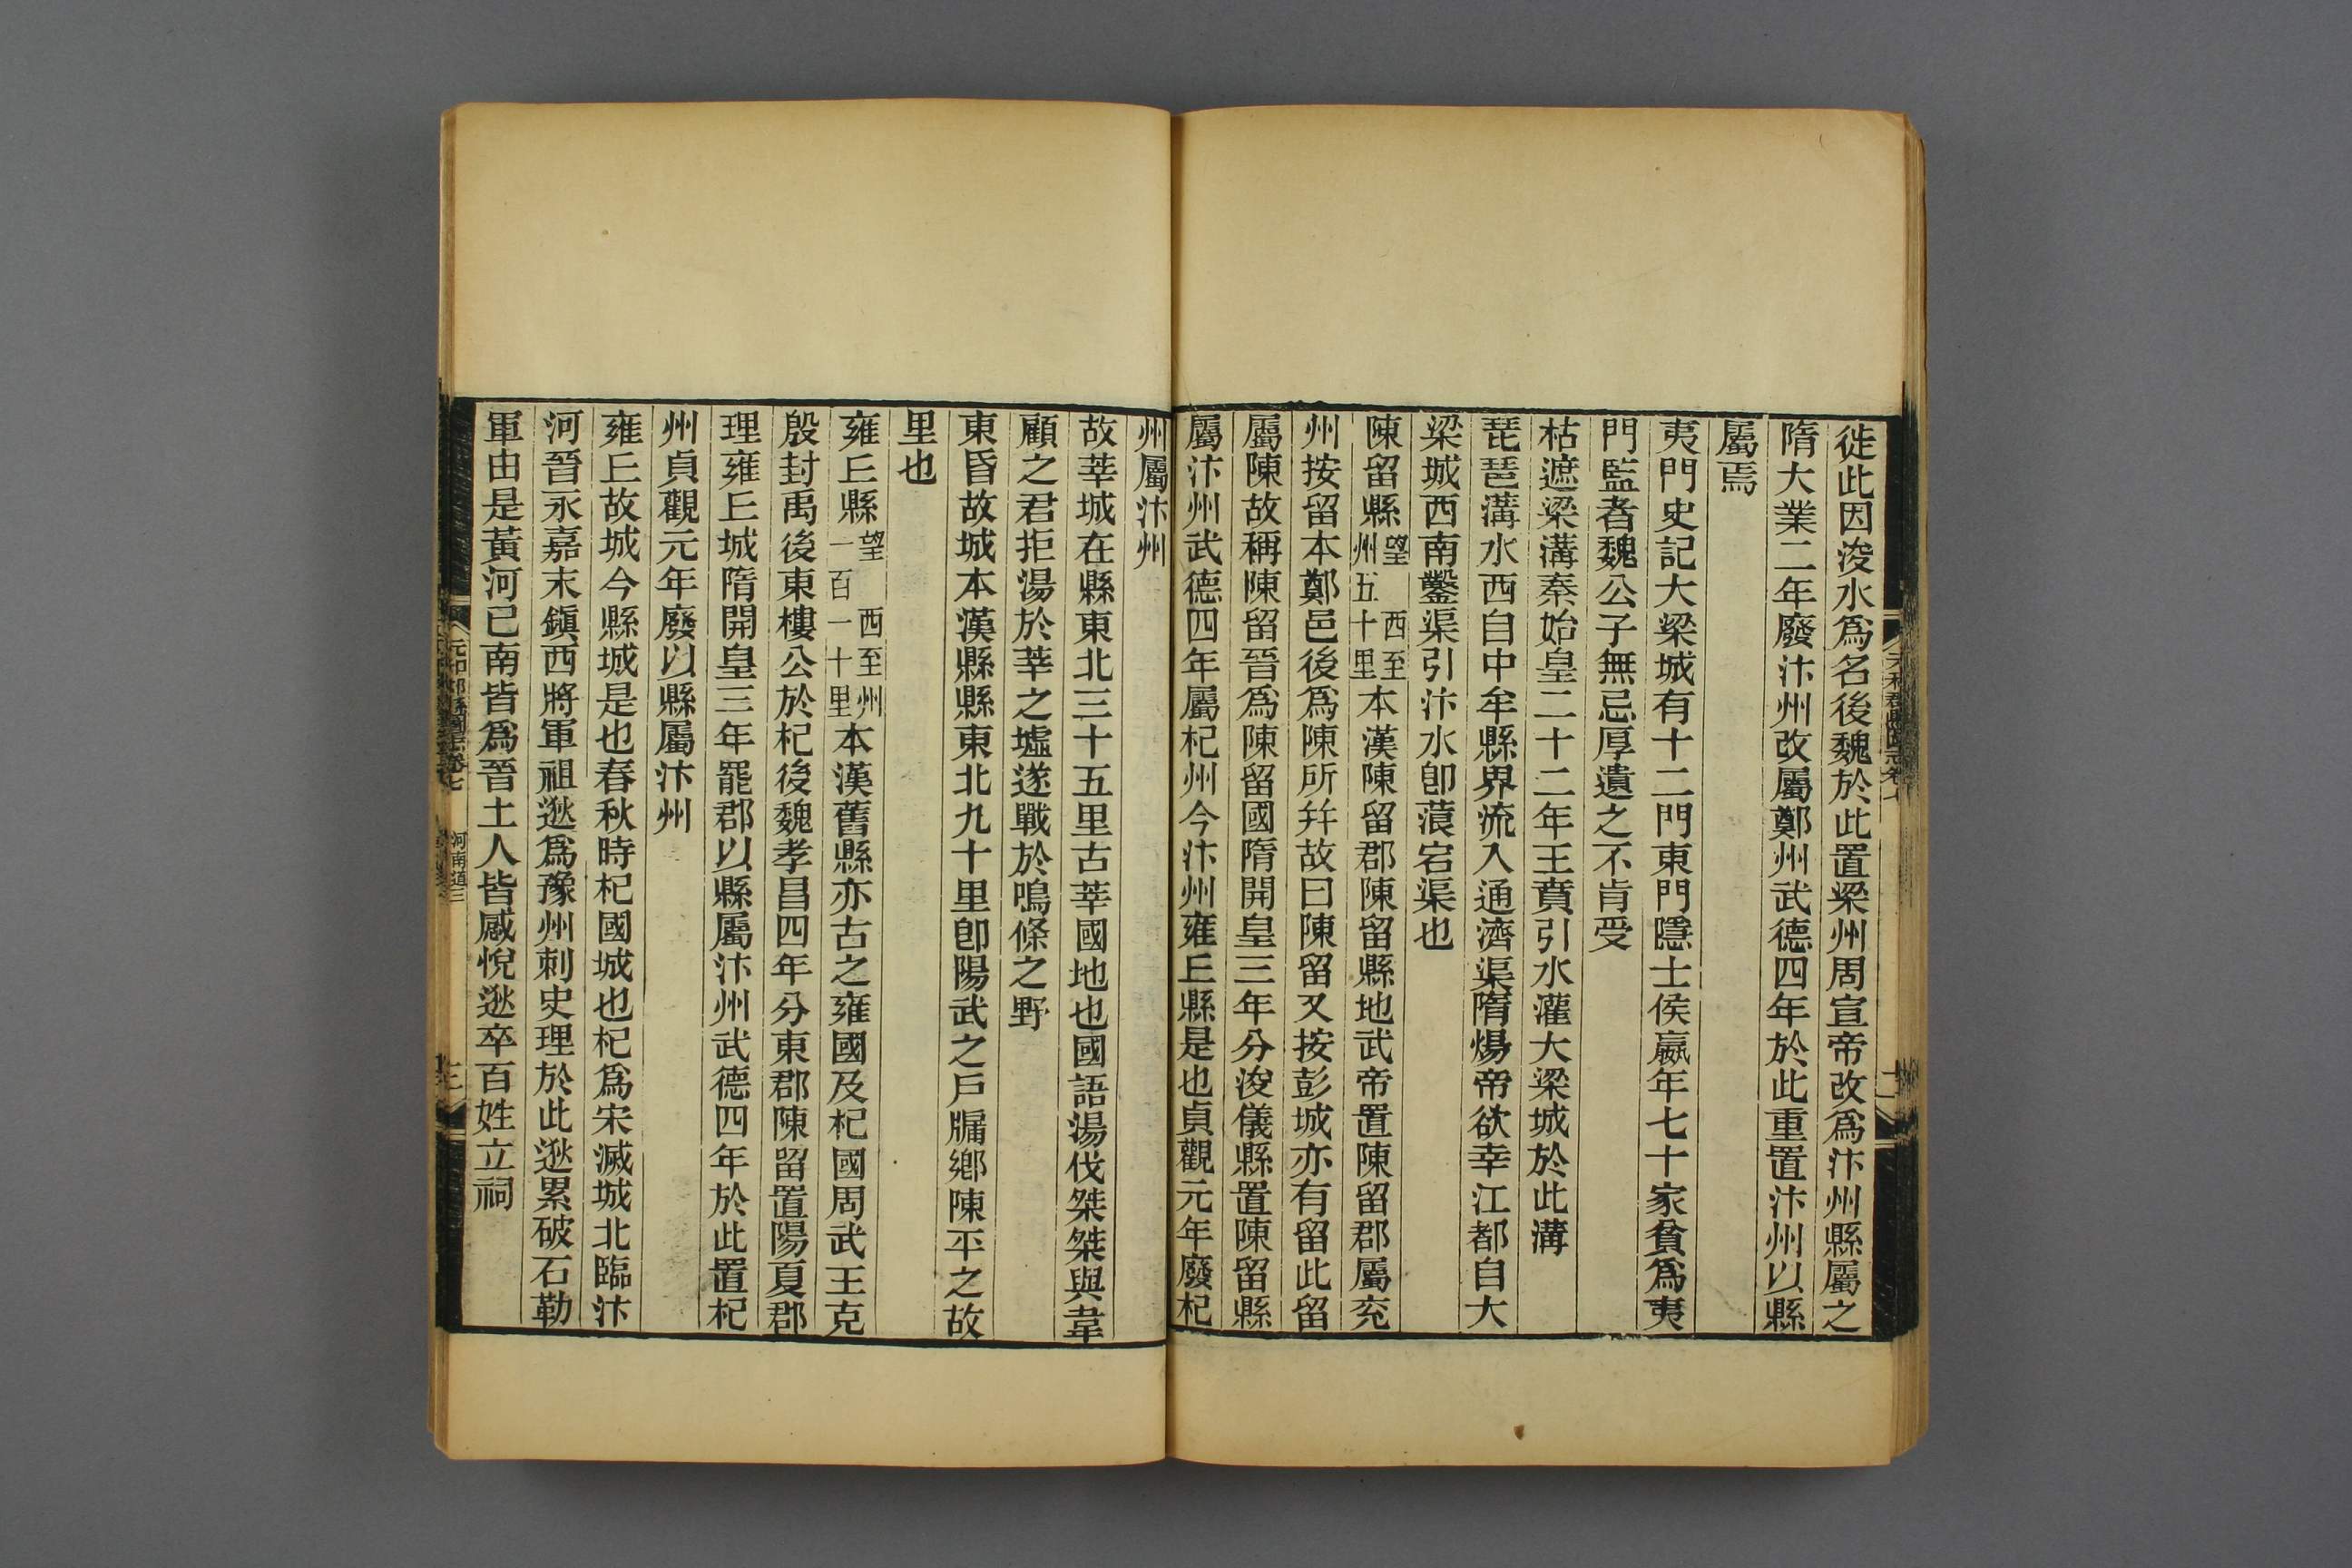 徙此因浚水爲名後魏於此置梁州周宣帝改爲汴州縣屬之
隋大業二年廢汴州改屬鄭州武德四年於此重置汴州以縣
屬焉
夷門史記大梁城有十二門東門隱士侯嬴年七十家貧爲夷
門監者魏公子無忌厚遺之不肯受
枯遮梁溝秦始皇二十二年王賁引水灌大梁城於此溝
琵琶溝水西自中牟縣界流入通濟渠隋煬帝欲幸江都自大
梁城西南鑿渠引汴水卽蒗宕渠也
陳留縣望西至州五十里本漢陳留郡陳留縣地武帝置陳留郡屬兖
州按留本鄭邑後爲陳所幷故曰陳留又按彭城亦有留此留
屬陳故稱陳留晉爲陳留國隋開皇三年分浚儀縣置陳留縣
屬汴州武德四年屬杞州今汴州雍丘縣是也貞觀元年廢杞
州屬汴州
故莘城在縣東北三十五里古莘國地也國語湯伐桀桀與韋
顧之君拒湯於莘之墟遂戰於鳴條之野
東昏故城本漢縣縣東北九十里卽陽武之戶牖鄉陳平之故
里也
雍丘縣望西至州一百一十里本漢舊縣亦古之雍國及杞國周武王克
殷封禹後東樓公於杞後魏孝昌四年分東郡陳留置陽夏郡
理雍丘城隋開皇三年罷郡以縣屬汴州武德四年於此置杞
州貞觀元年廢以縣屬汴州
雍丘故城今縣城是也春秋時杞國城也杞爲宋滅城北臨汴
河晉永嘉末鎭西將軍祖逖爲豫州刺史理於此逖累破石勒
軍由是黃河已南皆爲晉土人皆感悅逖卒百姓立祠
元和郡縣圖志卷七
河南道三
三